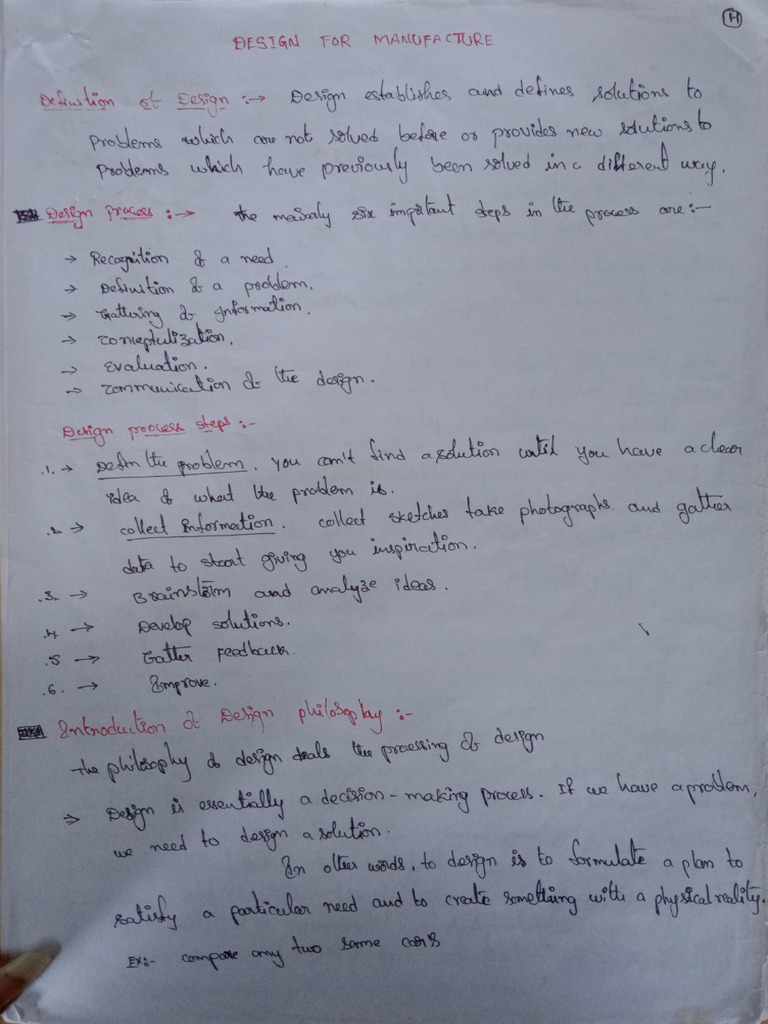 H
DESIGN FOR MANUFACTURE
Definition of Design :→ Design establishes and defines solutions to
problems which are not solved before or provides new solutions to
problems which have previously been solved in a different way.
Design process :→ the mainly six important steps in the process are:-
→ Recognition of a need.
→ Definition of a problem.
→ Gathering of Information.
→ Conceptulization.
→ Evaluation.
→ Communication of the design.
Design process steps :-
.1. → Defin the problem. you can't find a solution until you have a clear
idea of what the problem is.
.2 → collect Information. collect sketches take photographs and gather
data to start giving you inspiration.
.3. → Brainstorm and analyze ideas.
.4 → Develop solutions.
.5 → Gather Feedback.
.6. → Improve.
Introduction of Design philosophy :-
the philosophy of design deals the processing of design
⇒ Design is essentially a decision-making process. If we have a problem,
we need to design a solution.
In other words, to design is to formulate a plan to
satisfy a particular need and to create something with a physical reality.
Ex:- compare any two same car's